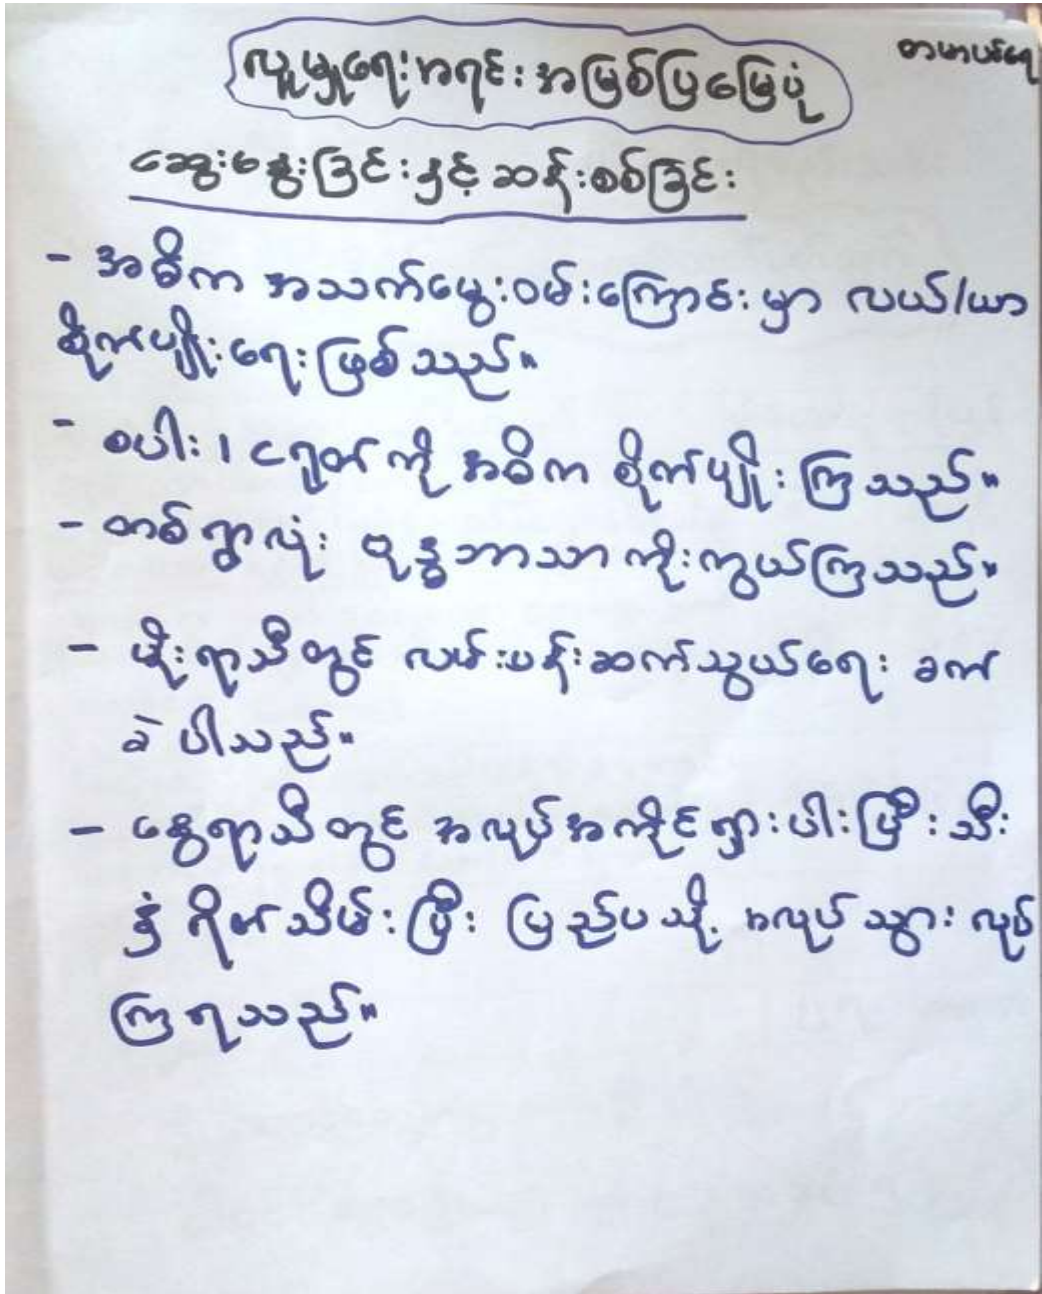 တမာပင်ရေ
လူမှုရေးအရင်းအမြစ်ပြမြေပုံ
ဆွေးနွေးခြင်းနှင့် ဆန်းစစ်ခြင်း
- အဓိက အသက်မွေးဝမ်းကြောင်းမှာ လယ်/ယာ
စိုက်ပျိုးရေးဖြစ်သည်။
- စပါး၊ ငရုတ်ကို အဓိက စိုက်ပျိုးကြသည်။
- တစ်ရွာလုံး ဗုဒ္ဓဘာသာ ကိုးကွယ်ကြသည်။
- မိုးရာသီတွင် လမ်းပန်းဆက်သွယ်ရေး ခက်
ခဲပါသည်။
- နွေရာသီတွင် အလုပ်အကိုင်ရှားပါးပြီး သီး
နှံ ရိတ်သိမ်းပြီး ပြည်ပသို့ အလုပ်သွားလုပ်
ကြရသည်။